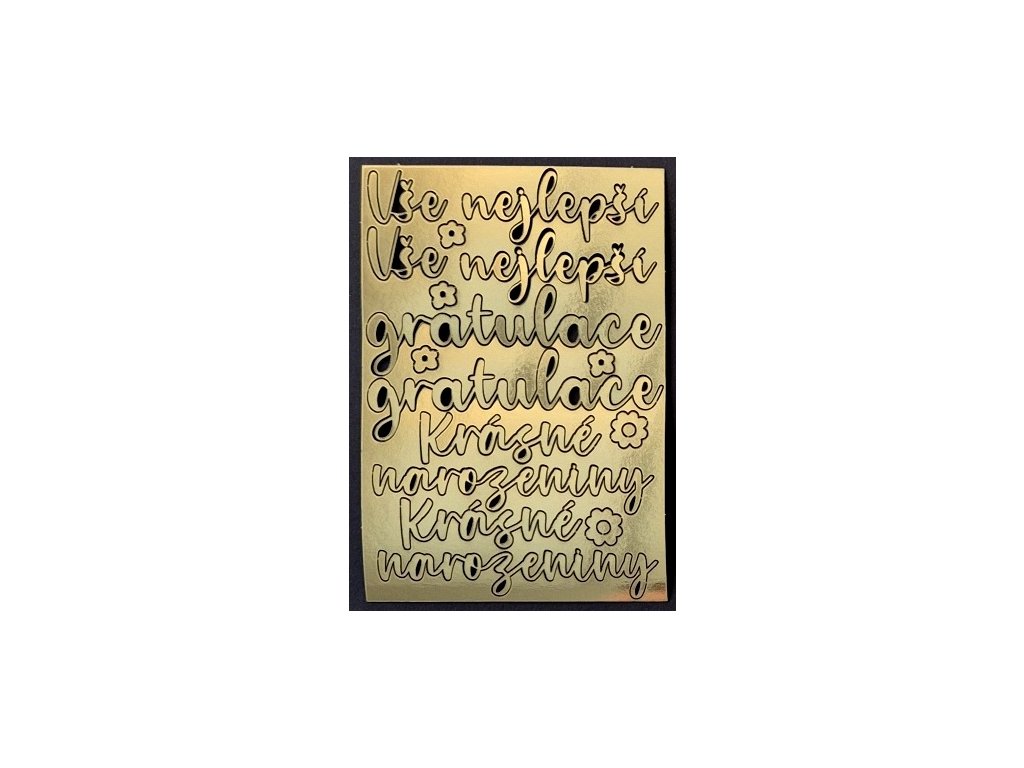 Vše nejlepší
Vše nejlepší
gratulace
gratulace
Krásné
narozeniny
Krásné
narozeniny